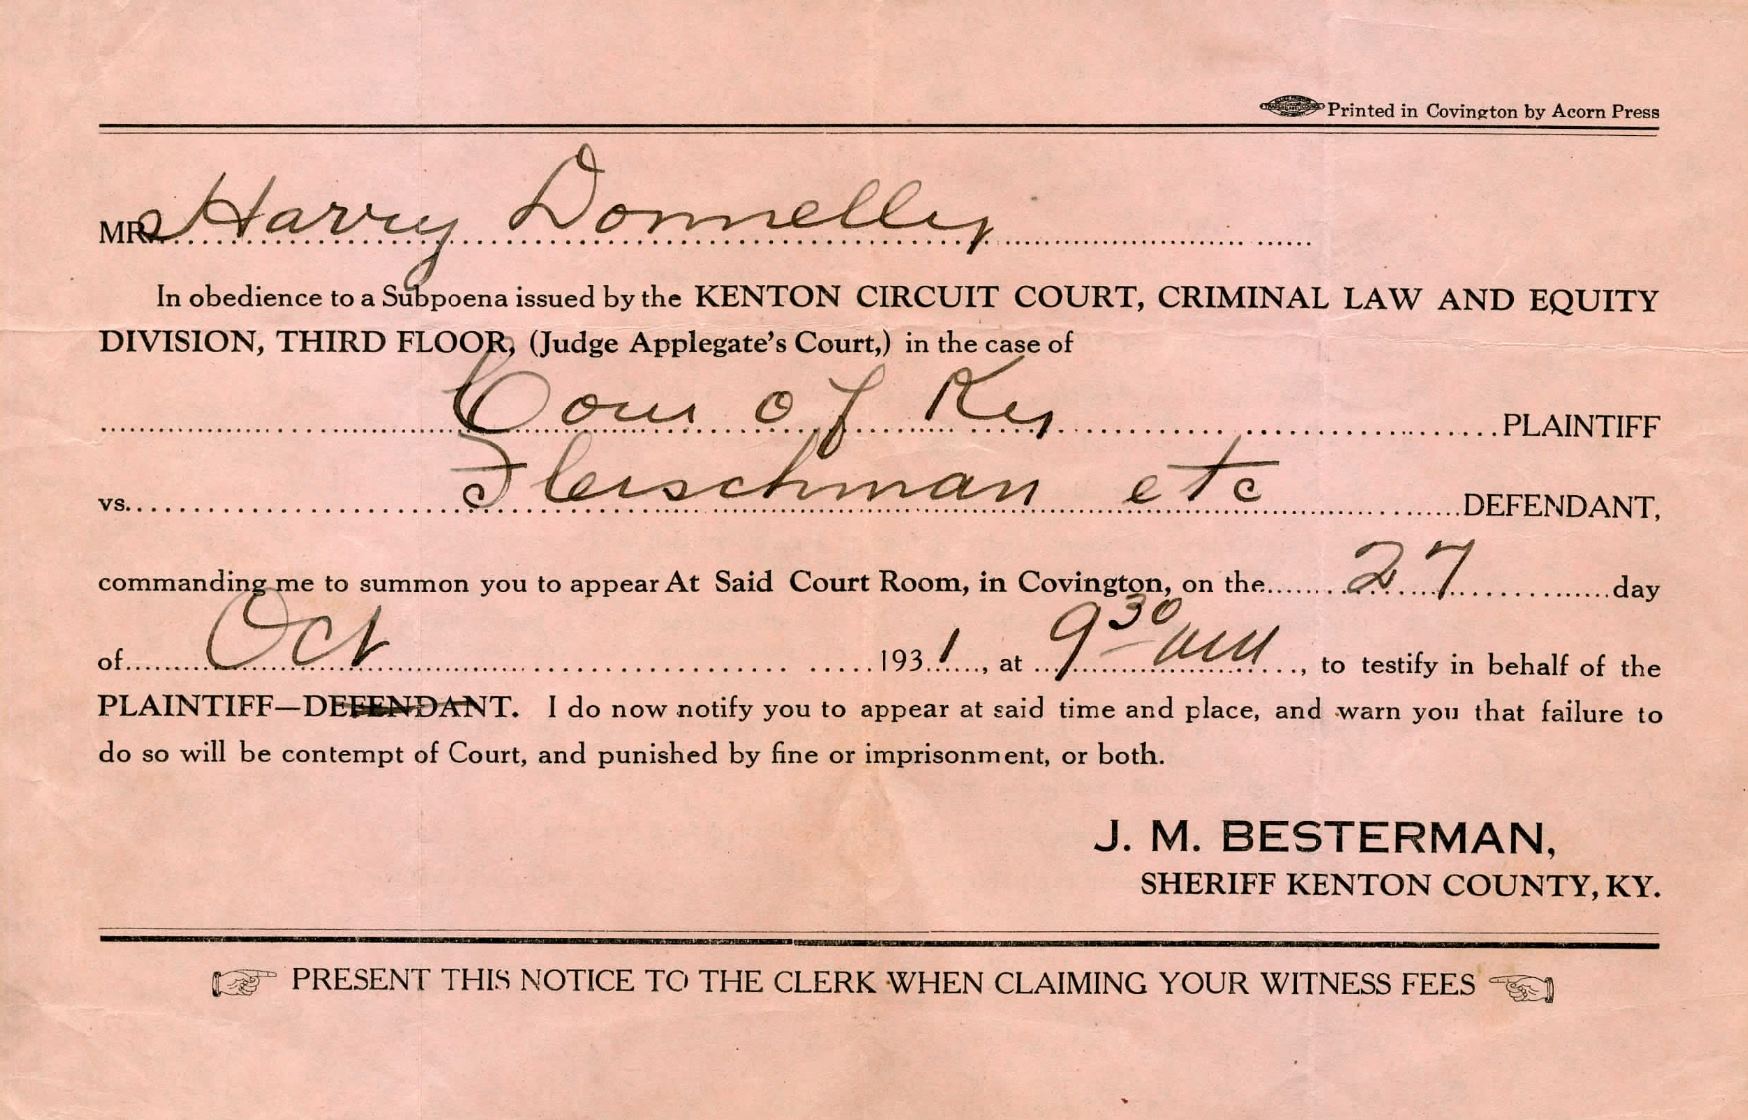 Printed in Covington by Acorn Press
MRs Harry Donnelly
In obedience to a Subpoena issued by the KENTON CIRCUIT COURT, CRIMINAL LAW AND EQUITY
DIVISION, THIRD FLOOR, (Judge Applegate's Court,) in the case of
Com of Ky PLAINTIFF
vs. Fleischman etc DEFENDANT,
commanding me to summon you to appear At Said Court Room, in Covington, on the 27 day
of Oct 1931, at 9 30 am, to testify in behalf of the
PLAINTIFF—DEFENDANT. I do now notify you to appear at said time and place, and warn you that failure to
do so will be contempt of Court, and punished by fine or imprisonment, or both.
J. M. BESTERMAN,
SHERIFF KENTON COUNTY, KY.
PRESENT THIS NOTICE TO THE CLERK WHEN CLAIMING YOUR WITNESS FEES